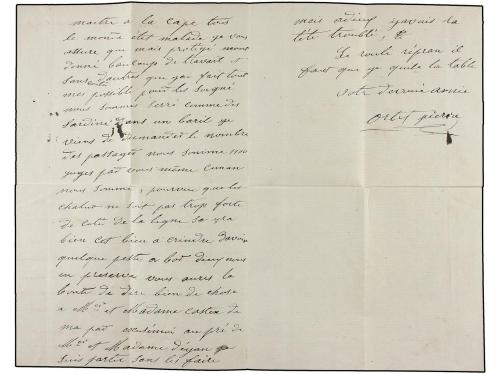 mettre a la cape tous
le monde etet malade je vous
assure que mais protégé nous
donné beaucoups de travait et
sans d'autres que jai fait tout
mes possible pour les soigné
nous sommes serré cumme des
sardine dans un baril je
viens de dumander le nombre
des passagés nous somme 1100
juges par vous même cuman
nous somme, pourvue que les
ne soit pas trop forte
de coté de la ligne sa
bien cet bien a crindre davoir
quelque peste a bor dieux nous
en préserve vous aures la
bonté de dire bien de chose
a Mr et Madame
ma part au pré de
Mr et Madame
suis partir sans les faire
mes adieux javais la
tète troublé,
Le roule répran il
faut que je quite la table
votre dévoué amie
Ortis pierre